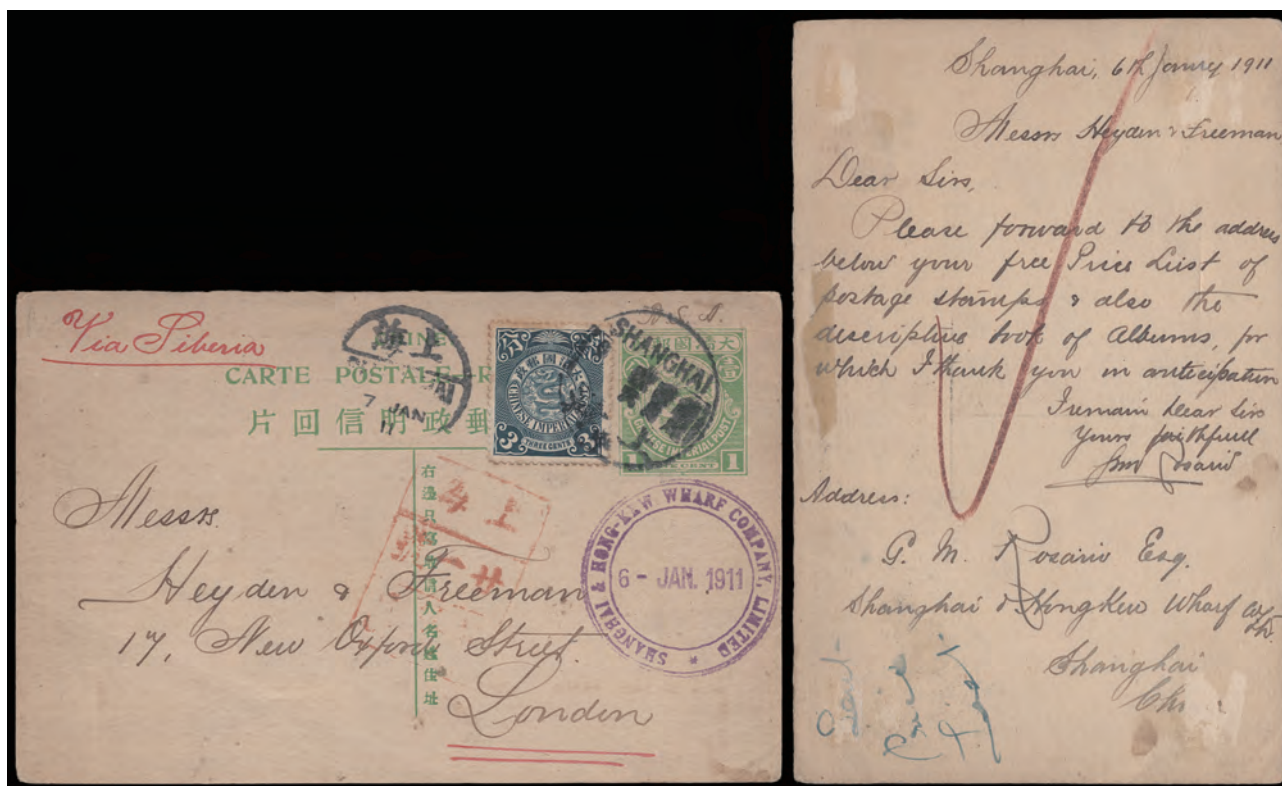 Via Siberia
CARTE POSTALE
片回信明政郵
上海
7 JAN
11
THREE CENTS
3 3
SHANGHAI
CHINESE IMPERIAL POST
1 CENT 1
右邊只寫收信人名姓住址
SHANGHAI & HONG-KEW WHARF COMPANY, LIMITED
6 - JAN. 1911
Messrs.
Heyden & Freeman
17, New Oxford Street
London
Shanghai, 6th Janry 1911
Messrs Heyden & Freeman
Dear Sirs,
Please forward to the address
below your free Price List of
postage stamps & also the
descriptive book of Albums, for
which I thank you in anticipation
I remain Dear Sirs
Yours faithfull
Rosario
Address:
G. M. Rosario Esq.
Shanghai & Hongkew Wharf Co/Ltd.
Shanghai